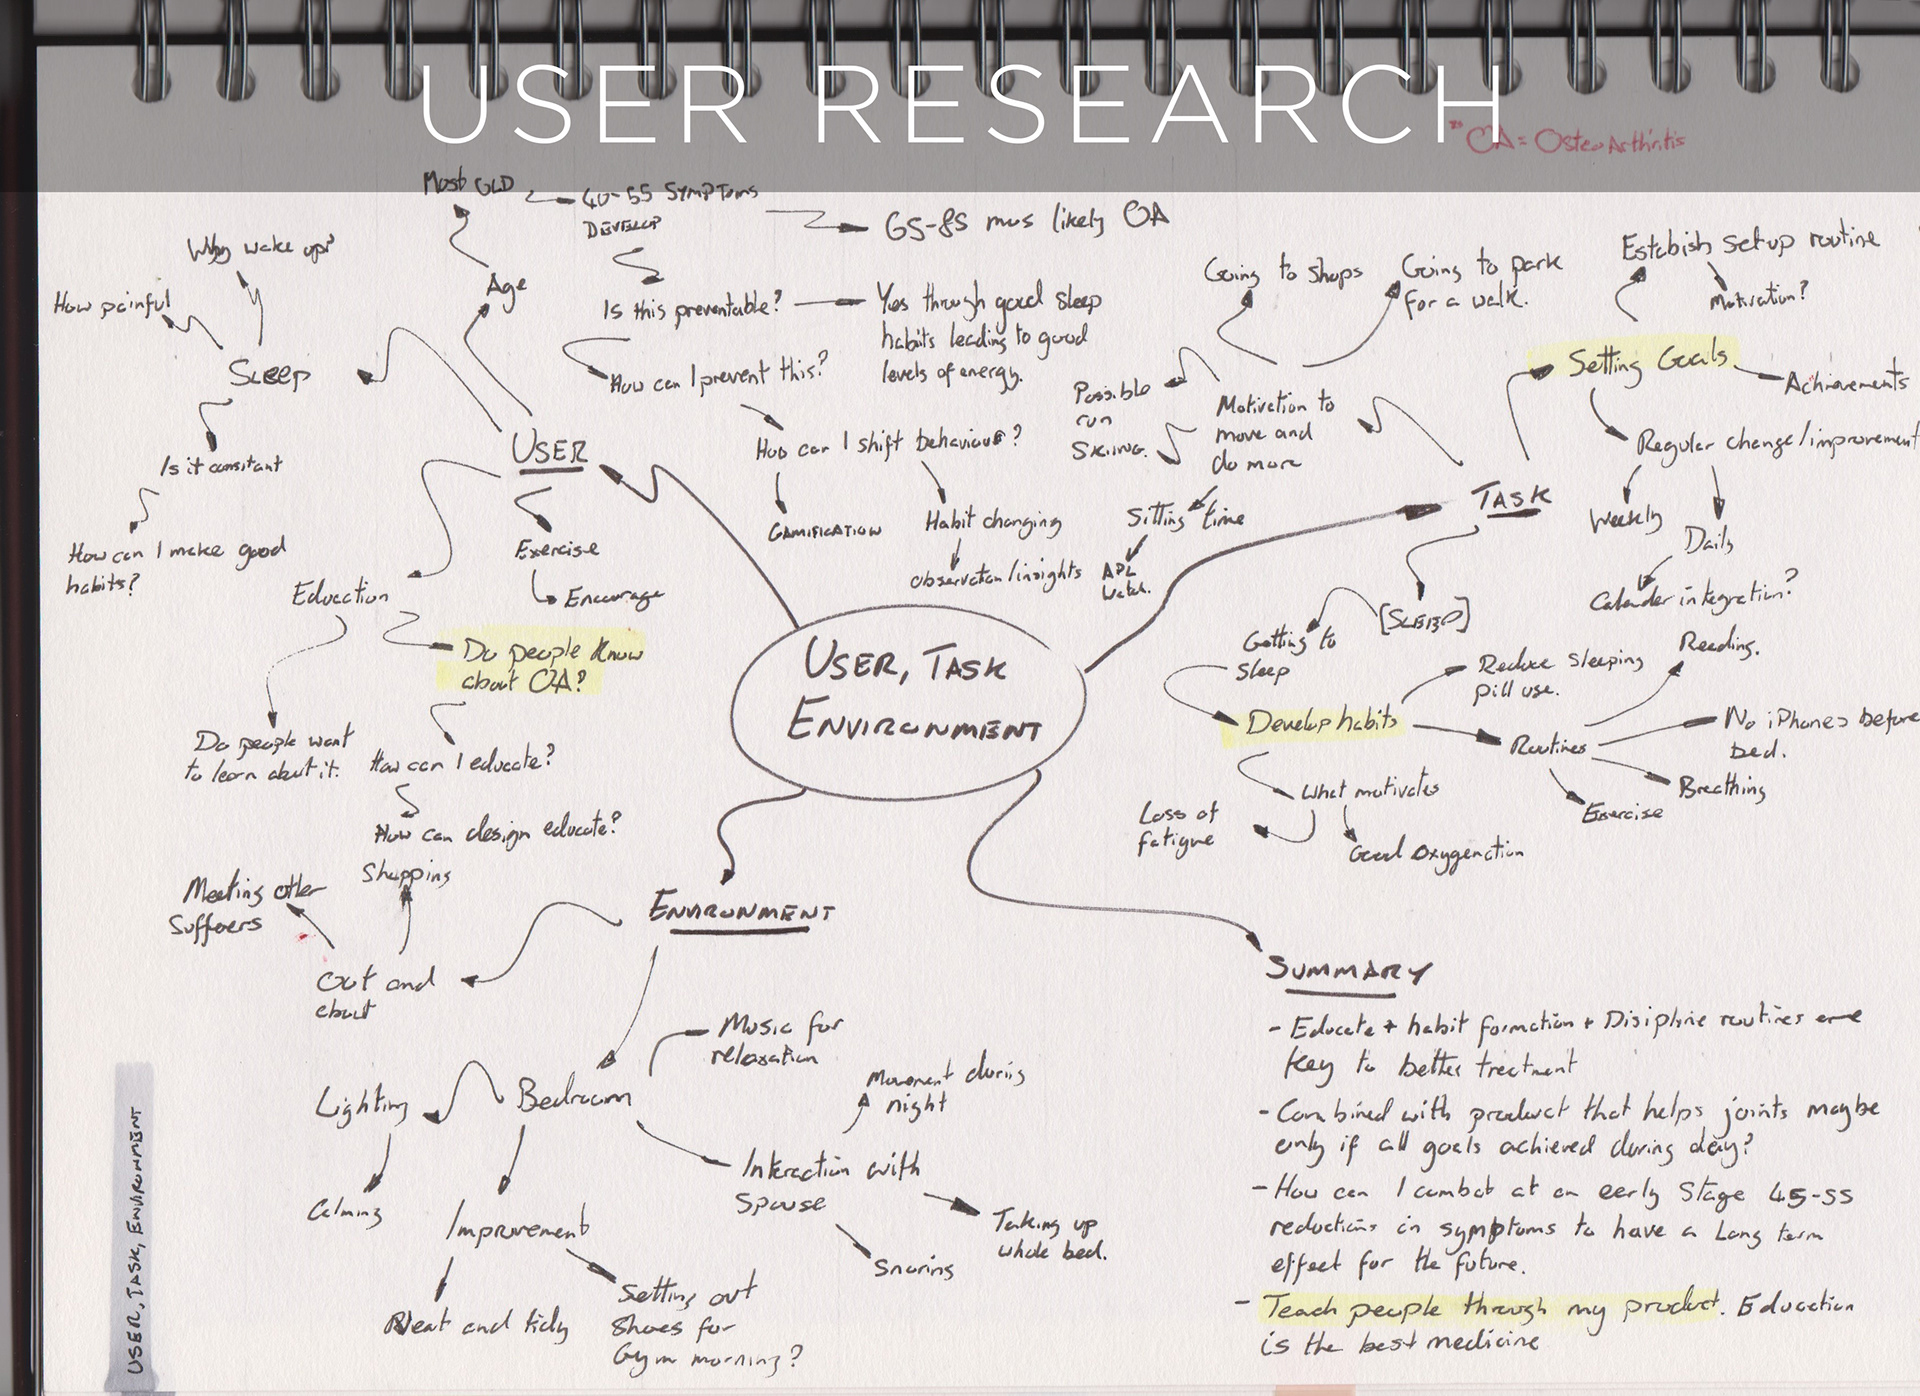 USER RESEARCH
** OA = OsteoArthritis
Most OLD
40-55 SYMPTOMS
DEVELOP
65-85 mos likely OA
Age
Is this preventable?
Yes through good sleep
habits leading to good
levels of energy.
How can I prevent this?
How can I shift behaviour?
GAMIFICATION
Habit changing
observation/insights
Why wake up?
How painful
SLEEP
Is it constant
How can I make good
habits?
USER
Exercise
Encourage
Education
Do people know
about OA?
Do people want
to learn about it.
How can I educate?
How can design educate?
Going to shops
Going to park
for a walk.
Possible
run
SKIING.
Motivation to
move and
do more
Sitting time
APL
Watch.
Estabish set up routine
Motivation?
Setting Goals
Achievements
Regular change/improvement
Weekly
Daily
Calander integration?
TASK
[SLEEP]
Getting to
sleep
Develop habits
Reduce sleeping
pill use.
Reading.
Routines
No iPhones before
bed.
Breathing
Exercise
What motivates
Loss of
fatigue
Good oxygenation
USER, TASK
ENVIRONMENT
ENVIRONMENT
Shopping
Meeting other
Suffers
Out and
about
Bedroom
Music for
relaxation
Lighting
Calming
Improvement
Neat and tidy
Setting out
Shoes for
Gym morning?
Movement during
night
Interaction with
Spouse
Taking up
whole bed.
Snoring
SUMMARY
- Educate + habit formation + Disipline routines are
key to better treatment
- Combined with product that helps joints maybe
only if all goals achieved during day?
- How can I combat at an early stage 45-55
reductions in symptoms to have a Long term
effect for the future.
- Teach people through my product. Education
is the best medicine
USER, TASK, ENVIRONMENT